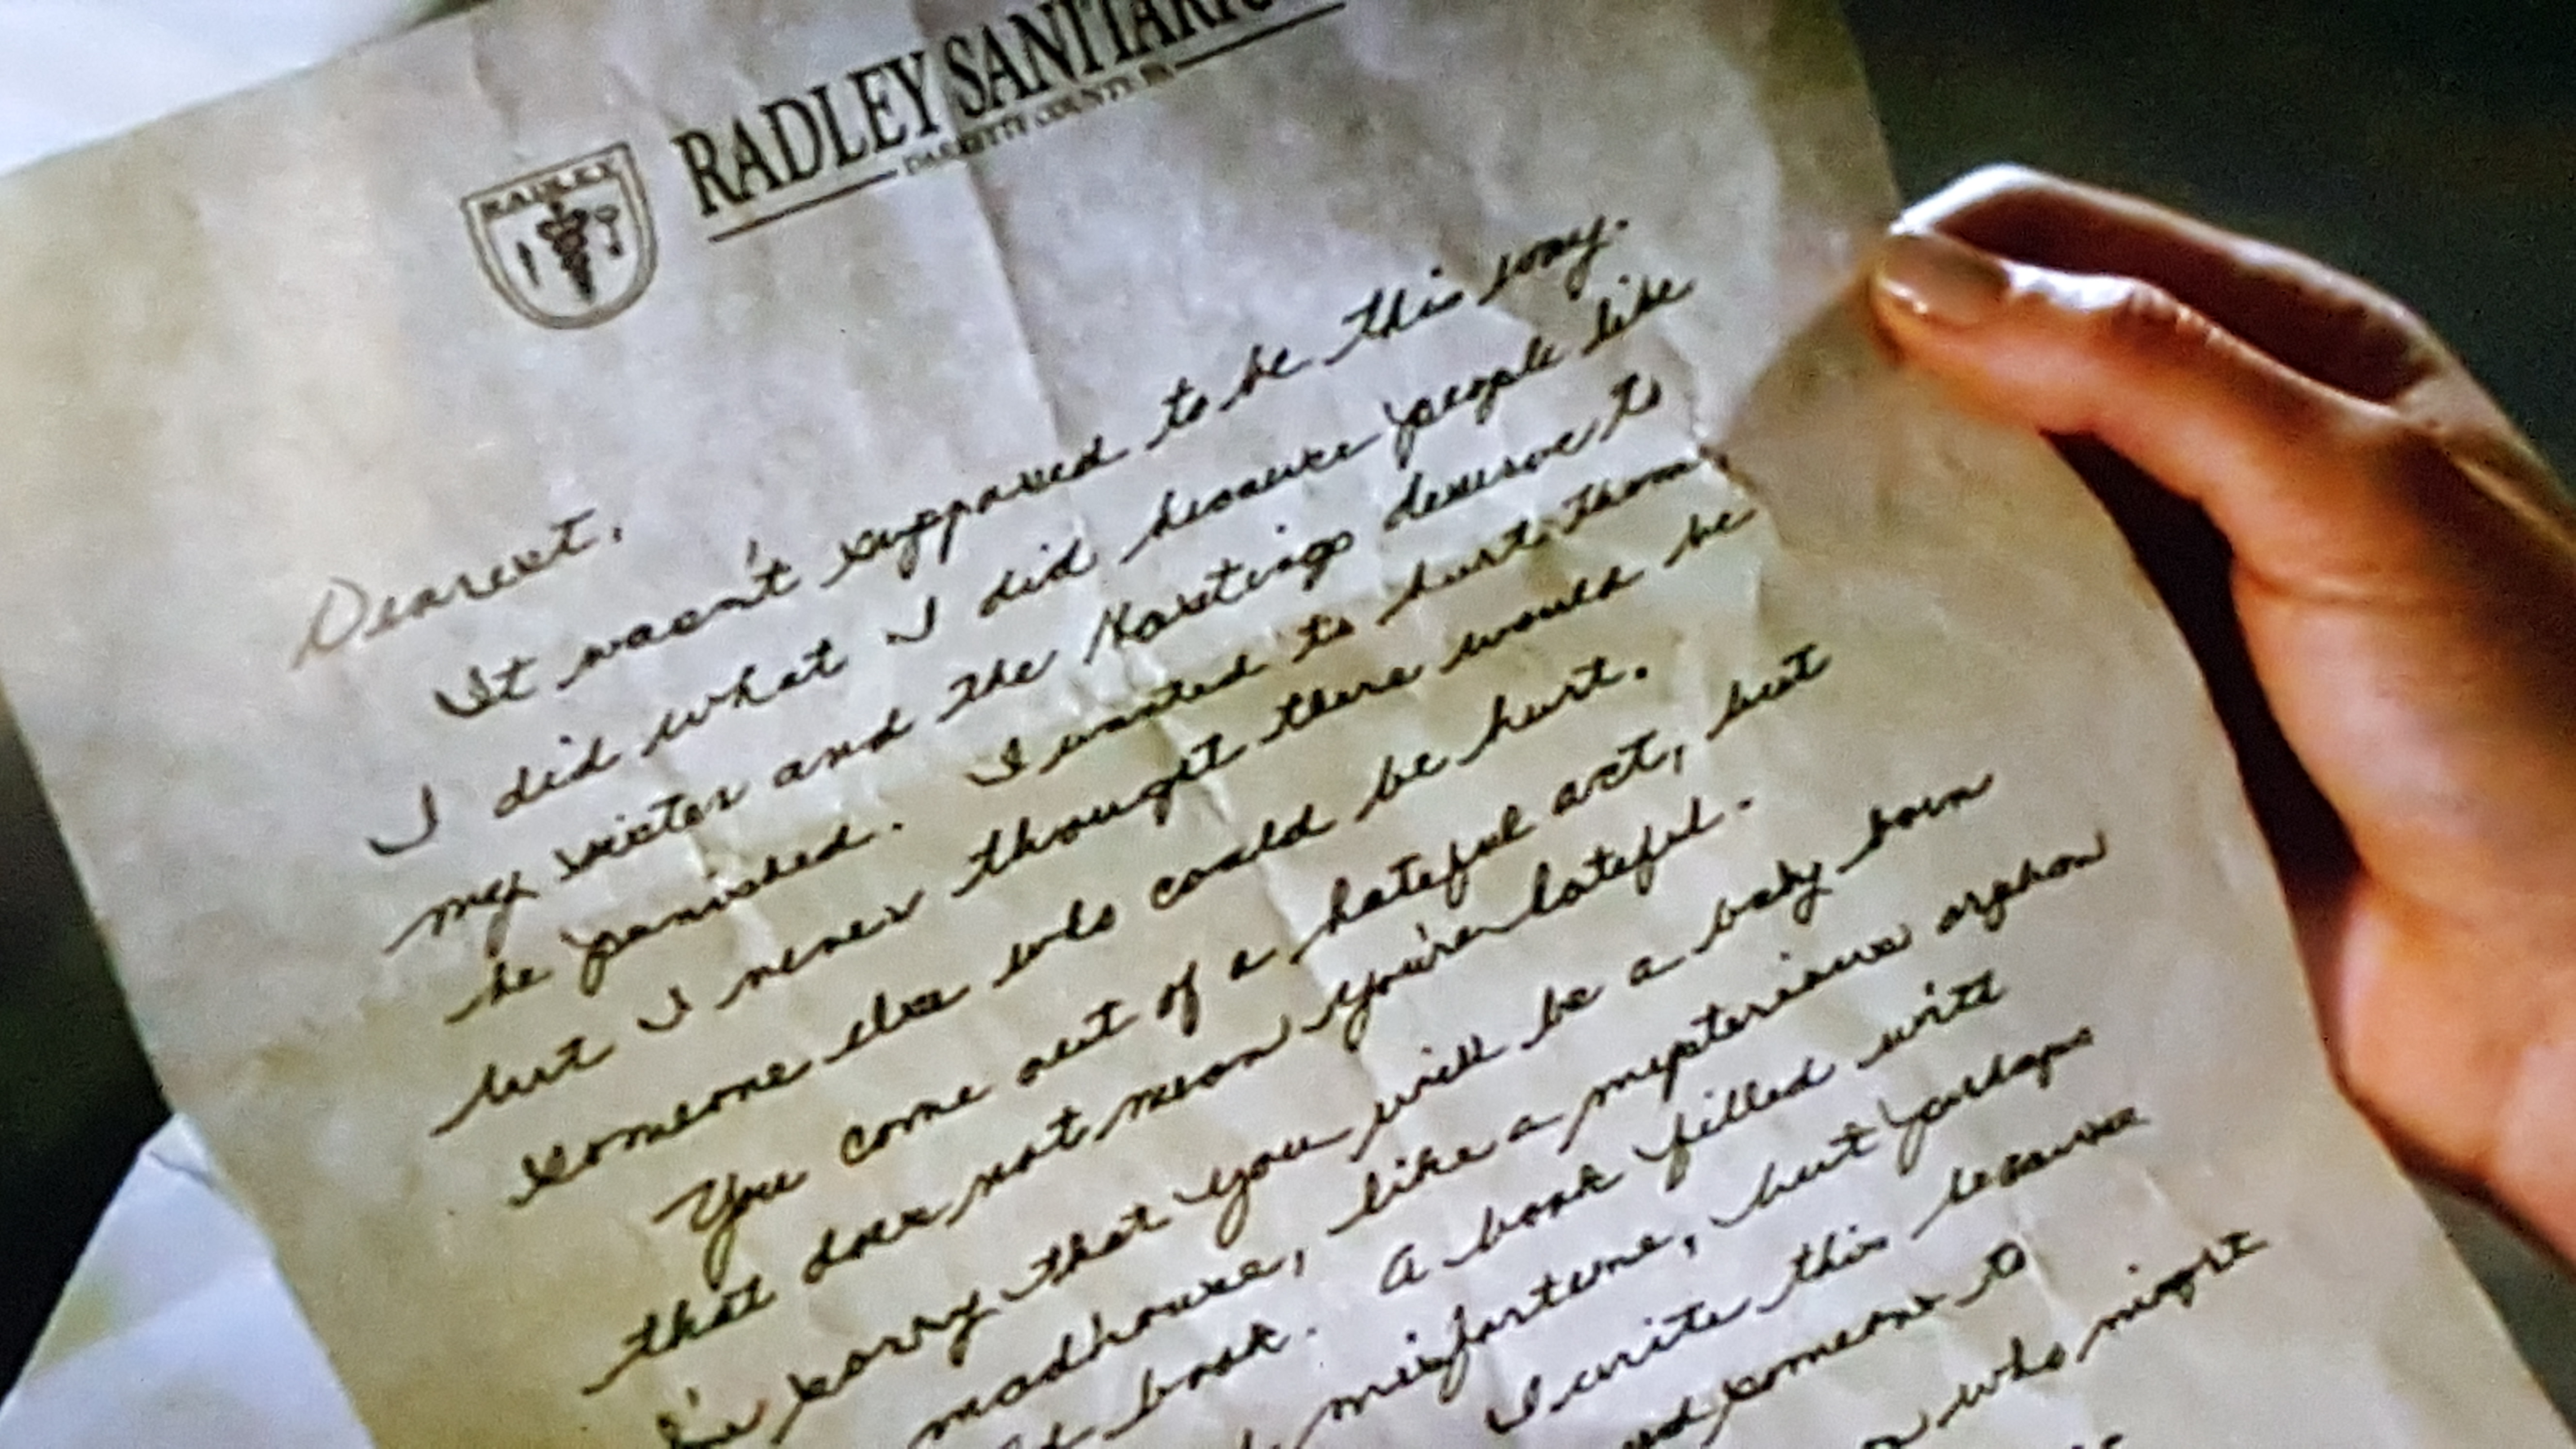 RADLEY SANITARIU
RADLEY
COUNTY, PA
Dearest,
It wasn't supposed to be this way.
I did what I did because people like
my sister and the Hastings deserve to
be punished. I wanted to hurt them,
but I never thought there would be
someone else who could be hurt.
You come out of a hateful act, but
that does not mean you're hateful.
I'm sorry that you will be a baby born
madhouse, like a mysterious orphan
book. A book filled with
misfortune, but perhaps
I write this because
someone to
who might